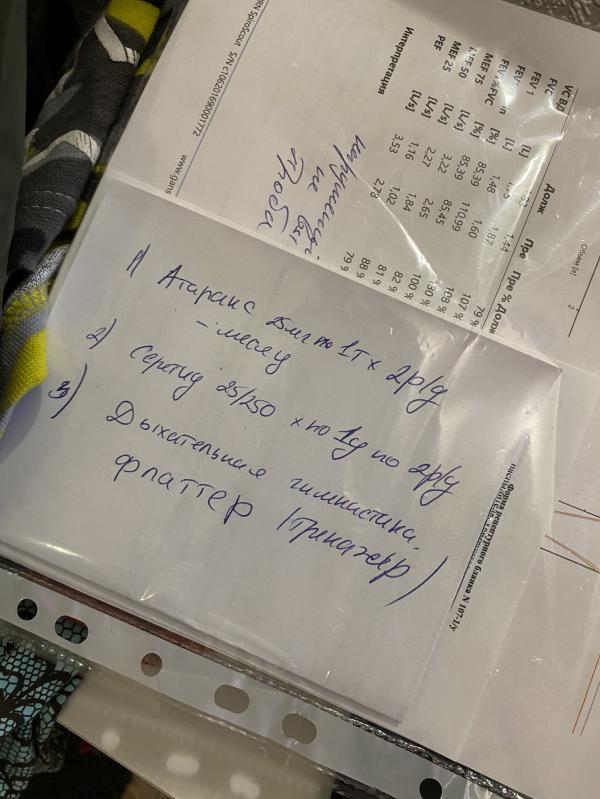 RN SpiroScout S/N c106201690001772 www.gans
Объем [л]
2
Долж Пре Пре % Долж
VC ВД [L] 1,44 79 %
FVC [L] 1,87 107 %
FEV 1 [L] 1,48 1,60 108 %
FEV1%FVC [%] 85,39 110,99 130 %
MEF 75 [L/s] 3,22 85,45 100 %
MEF 50 [L/s] 2,27 2,65 82 %
MEF 25 [L/s] 1,16 1,84 81 %
PEF [L/s] 3,53 1,02 88 %
2,78 79 %
Интерпретация
не
1) Атаракс 25мг по 1т х 2р/д
– месяц
2) Серетид 25/250 х по 1д по 2р/д
3) Дыхательная гимнастика.
флаттер /тренажёр)
Форма рецептурного бланка N 107-1/у